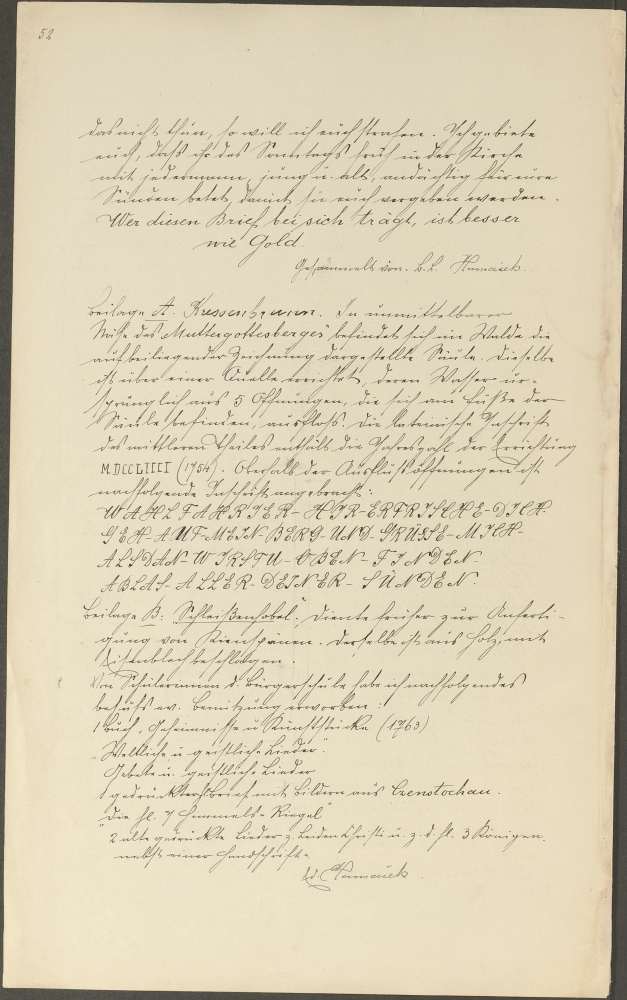 52
das nicht thun, so will ich euch strafen. Ich gebiete
euch, daß ihr des Samstags früh in der Kirche
mit jedermann, jung u. alt, andächtig für eure
Sünden betet, damit sie euch vergeben werden.
Wer diesen Brief bei sich trägt, ist besser
wie Gold.
Gesammelt von
Beilage A. Kressenbrunn. In unmittelbarer
Nähe des „Muttergottesberges" befindet sich im Walde die
auf beiliegender Zeichnung dargestellte Säule. Dieselbe
ist über einer Quelle errichtet, deren Wasser ur-
sprünglich aus 5 Öffnungen, die sich am Fuße der
Säule befinden, ausfloß. Die lateinische Inschrift
des mittleren Theiles enthält die Jahreszahl der Errichtung
MDCCLIIII (1754). Oberhalb der Ausflußöffnungen ist
nachfolgende Inschrift angebracht:
WAHLFAHRTER-HIR-ERFRISCHE-DICH
GEH-AUF-MEIN-BERG-UND-GRÜSSE-MICH-
ALSDAN-WIRSTU-OBEN-FINDEN-
ABLAS-ALLER-DEINER-SÜNDEN.
Beilage B: „Schleißenhobel." Diente früher zur Anferti-
gung von Kienspänen. Derselbe ist aus Holz, mit
Eisenblech beschlagen.
Von Schülerinnen d. Bürgerschule habe ich nachfolgendes
behufs ev. Benützung erworben:
1 Buch, Geheimnisse u. Kunststücke (1763)
„Weltliche u. geistliche Lieder".
Gebete u. geistliche Lieder
1 gedruckter Brief mit Bildern aus Czenstochau.
„Die hl. 7 Himmels-Riegel"
2 alte gedruckte Lieder z. Leiden Christi u. z. d. hl. 3 Königen.
nebst einer Handschrift.